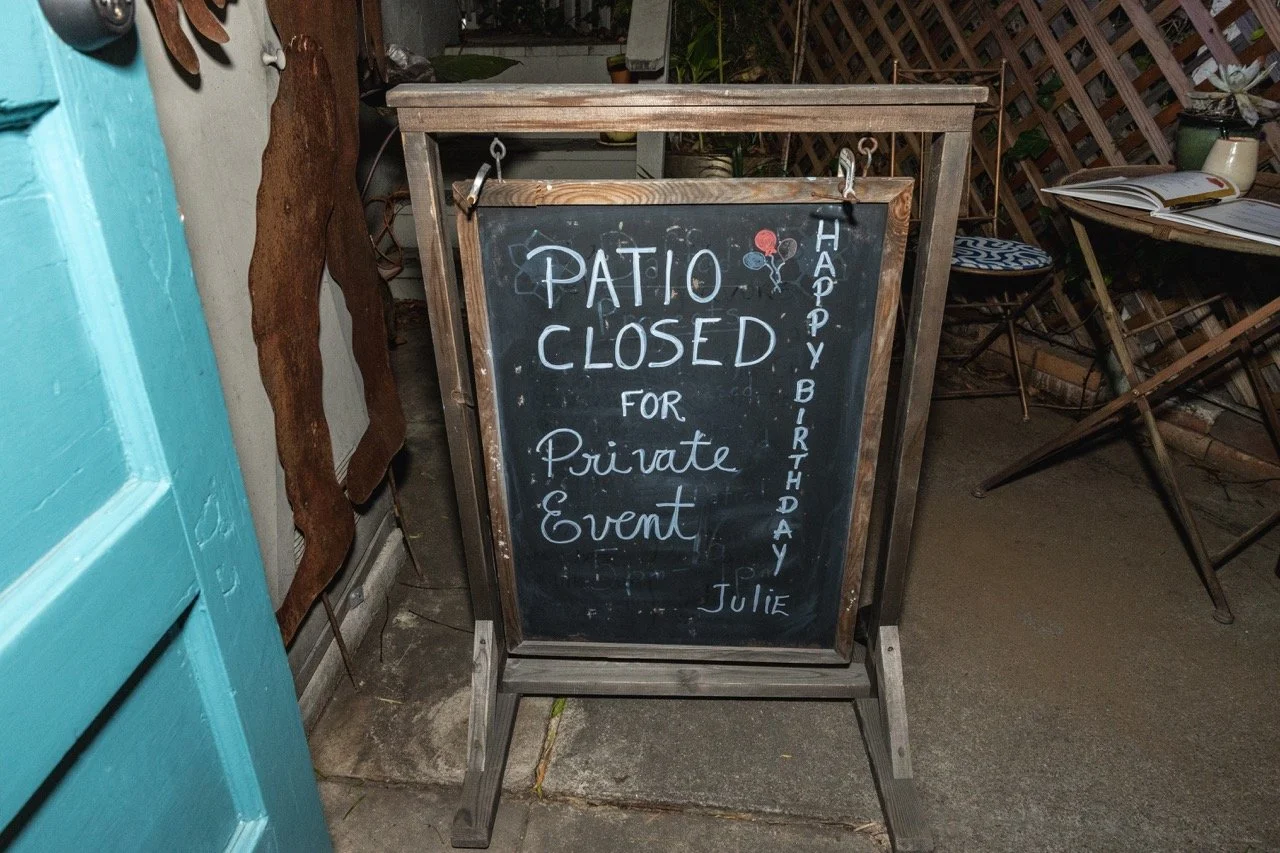 PATIO
CLOSED
FOR
Private
Event
HAPPY BIRTHDAY
JuliE